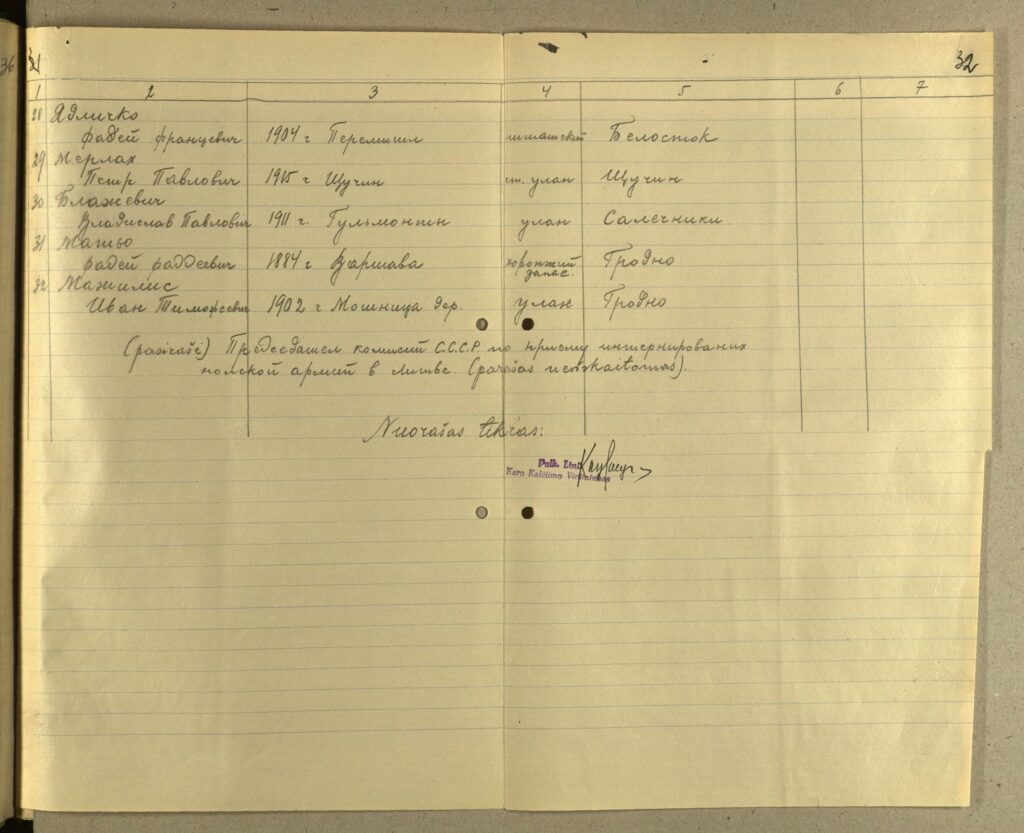 36
31
32
1 2 3 4 5 6 7
28 Ядличко
фадей францевич 1904 г Перемишл Белосток
29 Мерлах
Петр Павлович 1915 г Щучин ст. улан Щучин
30 Блажевич
Владислав Павлович 1911 г. Гульмонтн улан Салечники
31 Матью
фадей фаддеевич 1884 г Варшава хоронжий Гродно
запас.
32 Мажилис
Иван Тимофеевич 1902 г Мошница дер. улан Гродно
(pasirašė) Председател комисий С.С.С.Р. по приему интернированих
полской армий в литве. (parašas neišskaitomas).
Nuorašas tikras:
Pulk. Ltn.
Karo Kalėjimo Viršininkas